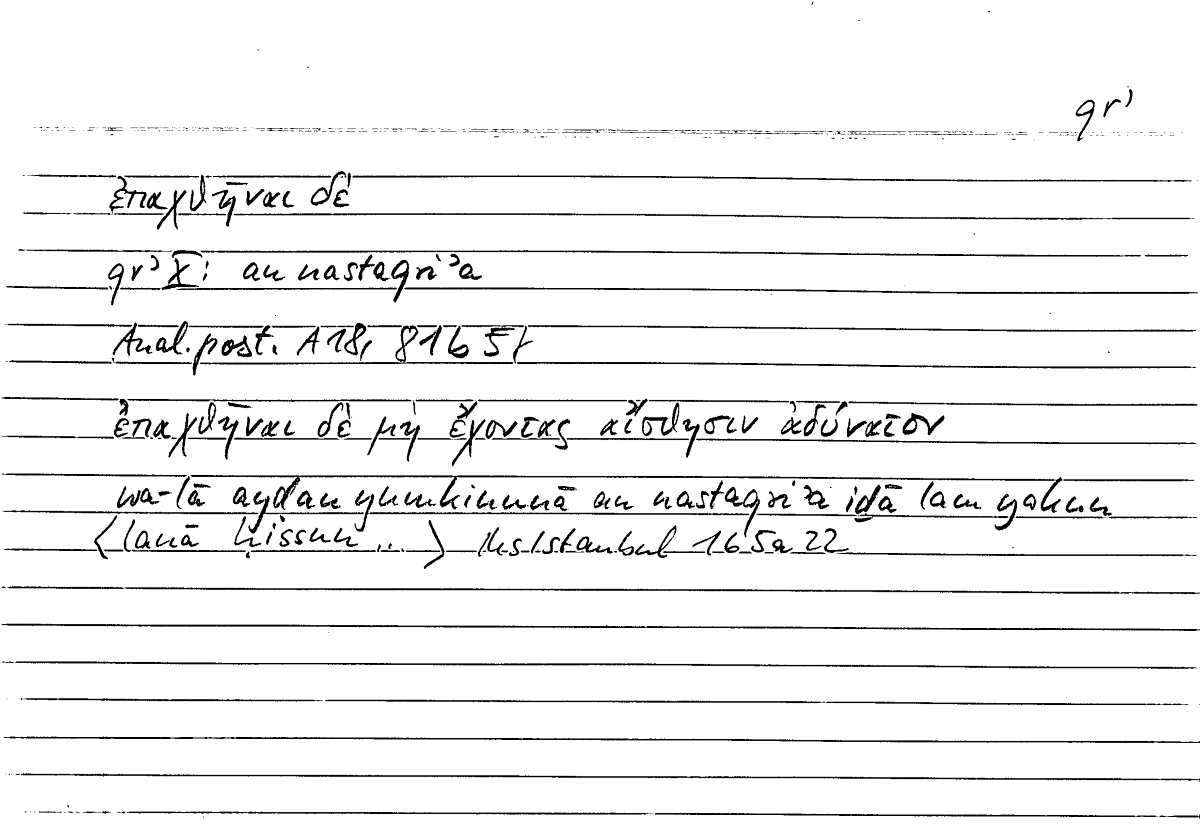 qrʾ
ἐπαχθῆναι δέ
qrʾ X: an nastaqriʾa
Anal. post. A 18, 81 b 5f
ἐπαχθῆναι δὲ μὴ ἔχοντας αἴσθησιν ἀδύνατον
wa-lā ayḍan yumkinunā an nastaqriʾa iḏā lam yakun
⟨lanā ḥissun ...⟩ Hs Istanbul 165a 22